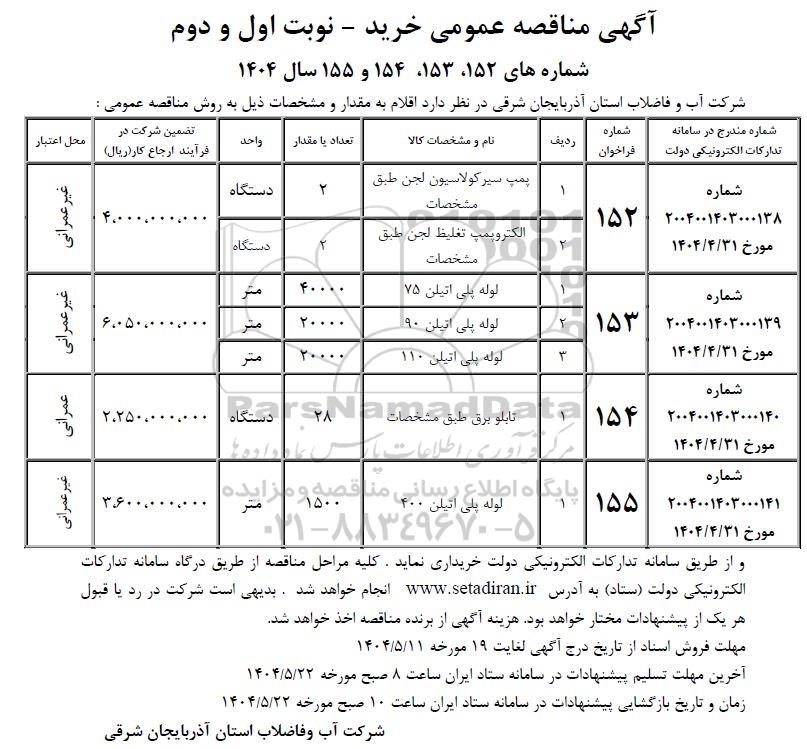 آگهی مناقصه عمومی خرید – نوبت اول و دوم
شماره های ۱۵۲، ۱۵۳، ۱۵۴ و ۱۵۵ سال ۱۴۰۴
شرکت آب و فاضلاب استان آذربایجان شرقی در نظر دارد اقلام به مقدار و مشخصات ذیل به روش مناقصه عمومی :
شماره مندرج در سامانه تدارکات الکترونیکی دولت | شماره فراخوان | ردیف | نام و مشخصات کالا | تعداد یا مقدار | واحد | تضمین شرکت در فرآیند ارجاع کار(ریال) | محل اعتبار
شماره ۲۰۰۴۰۰۱۴۰۳۰۰۰۱۳۸ مورخ ۱۴۰۴/۴/۳۱ | ۱۵۲ | ۱ | پمپ سیرکولاسیون لجن طبق مشخصات | ۲ | دستگاه | ۴،۰۰۰،۰۰۰،۰۰۰ | غیرعمرانی
۲ | الکتروپمپ تغلیظ لجن طبق مشخصات | ۲ | دستگاه
شماره ۲۰۰۴۰۰۱۴۰۳۰۰۰۱۳۹ مورخ ۱۴۰۴/۴/۳۱ | ۱۵۳ | ۱ | لوله پلی اتیلن ۷۵ | ۴۰۰۰۰ | متر | ۶،۰۵۰،۰۰۰،۰۰۰ | غیرعمرانی
۲ | لوله پلی اتیلن ۹۰ | ۲۰۰۰۰ | متر
۳ | لوله پلی اتیلن ۱۱۰ | ۲۰۰۰۰ | متر
شماره ۲۰۰۴۰۰۱۴۰۳۰۰۰۱۴۰ مورخ ۱۴۰۴/۴/۳۱ | ۱۵۴ | ۱ | تابلو برق طبق مشخصات | ۲۸ | دستگاه | ۲،۲۵۰،۰۰۰،۰۰۰ | عمرانی
شماره ۲۰۰۴۰۰۱۴۰۳۰۰۰۱۴۱ مورخ ۱۴۰۴/۴/۳۱ | ۱۵۵ | ۱ | لوله پلی اتیلن ۴۰۰ | ۱۵۰۰ | متر | ۳،۶۰۰،۰۰۰،۰۰۰ | غیرعمرانی
ParsNamadData
مرکز فرآوری اطلاعات پارس نماد داده ها
پایگاه اطلاع رسانی مناقصه و مزایده
۰۲۱-۸۸۳۴۹۶۷۰-۵
و از طریق سامانه تدارکات الکترونیکی دولت خریداری نماید . کلیه مراحل مناقصه از طریق درگاه سامانه تدارکات
الکترونیکی دولت (ستاد) به آدرس www.setadiran.ir انجام خواهد شد . بدیهی است شرکت در رد یا قبول
هر یک از پیشنهادات مختار خواهد بود. هزینه آگهی از برنده مناقصه اخذ خواهد شد.
مهلت فروش اسناد از تاریخ درج آگهی لغایت ۱۹ مورخه ۱۴۰۴/۵/۱۱
آخرین مهلت تسلیم پیشنهادات در سامانه ستاد ایران ساعت ۸ صبح مورخه ۱۴۰۴/۵/۲۲
زمان و تاریخ بازگشایی پیشنهادات در سامانه ستاد ایران ساعت ۱۰ صبح مورخه ۱۴۰۴/۵/۲۲
شرکت آب وفاضلاب استان آذربایجان شرقی